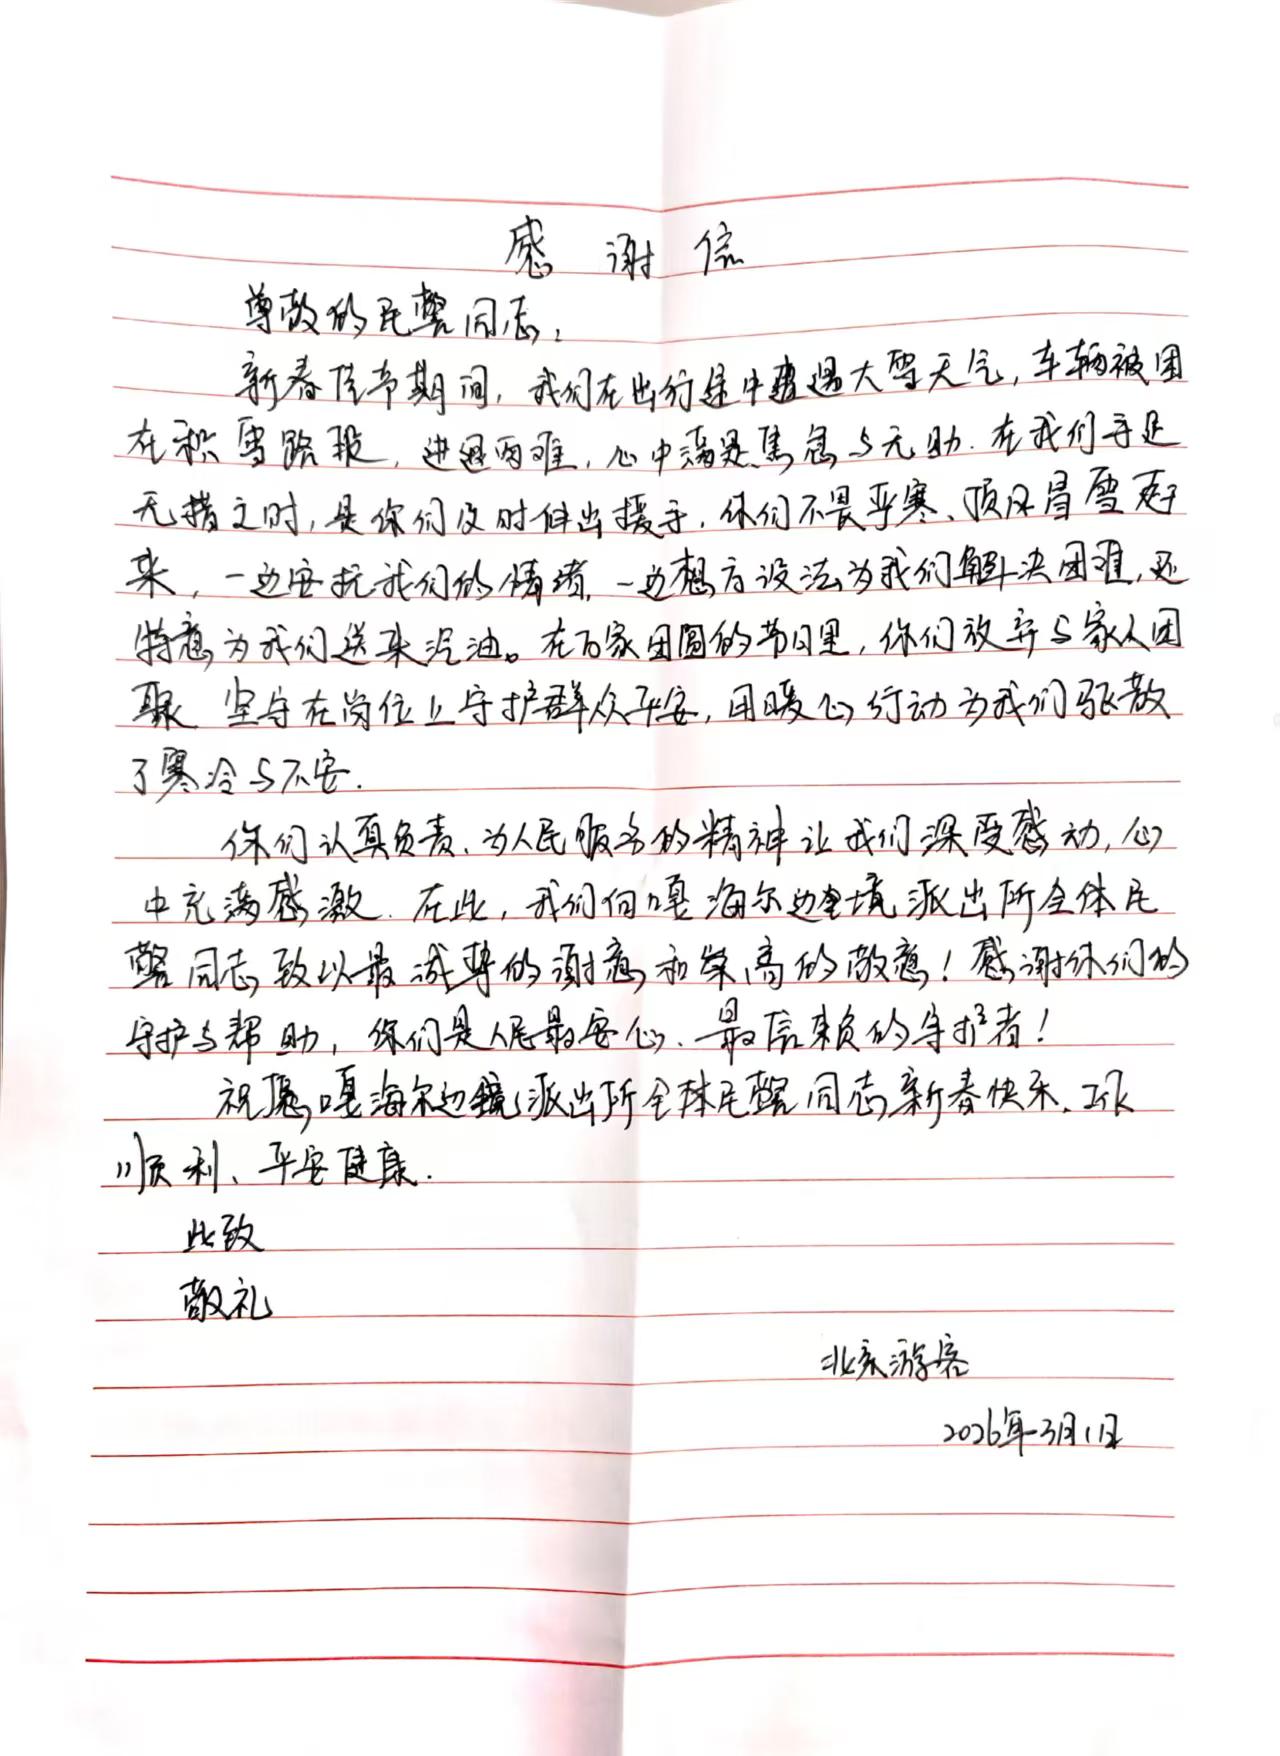 感谢信
尊敬的民警同志:
新春佳节期间,我们在出行途中遭遇大雪天气,车辆被困
在积雪路段,进退两难,心中满是焦急与无助.在我们手足
无措之时,是你们及时伸出援手,你们不畏严寒、顶风冒雪赶
来,一边安抚我们的情绪,一边想方设法为我们解决困难,还
特意为我们送来汽油。在万家团圆的节日里,你们放弃与家人团
聚 坚守在岗位上守护群众平安,用暖心行动为我们驱散
了寒冷与不安.
你们认真负责、为人民服务的精神让我们深受感动,心
中充满感激.在此,我们向嘎海尔边境派出所全体民
警同志致以最诚挚的谢意和崇高的敬意!感谢你们的
守护与帮助,你们是人民最安心、最信赖的守护者!
祝愿嘎海尔边境派出所全体民警同志新春快乐、工作
顺利、平安健康.
此致
敬礼
北京游客
2026年3月1日